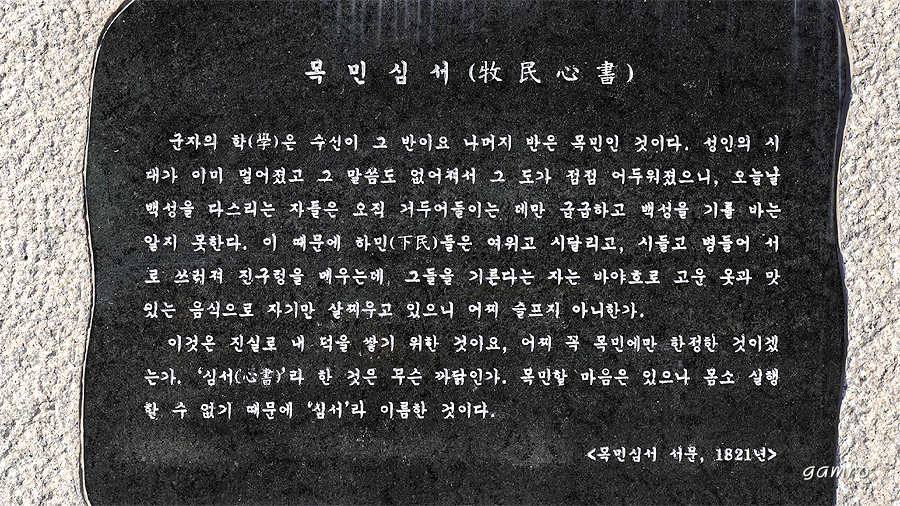 목 민 심 서 (牧 民 心 書)
군자의 학(學)은 수신이 그 반이요 나머지 반은 목민인 것이다. 성인의 시
대가 이미 멀어졌고 그 말씀도 없어져서 그 도가 점점 어두워졌으니, 오늘날
백성을 다스리는 자들은 오직 거두어들이는 데만 급급하고 백성을 기를 바는
알지 못한다. 이 때문에 하민(下民)들은 여위고 시달리고, 시들고 병들어 서
로 쓰러져 진구렁을 메우는데, 그들을 기른다는 자는 바야흐로 고운 옷과 맛
있는 음식으로 자기만 살찌우고 있으니 어찌 슬프지 아니한가.
이것은 진실로 내 덕을 쌓기 위한 것이요, 어찌 꼭 목민에만 한정한 것이겠
는가. ‘심서(心書)’라 한 것은 무슨 까닭인가. 목민할 마음은 있으나 몸소 실행
할 수 없기 때문에 ‘심서’라 이름한 것이다.
<목민심서 서문, 1821년>
gamro